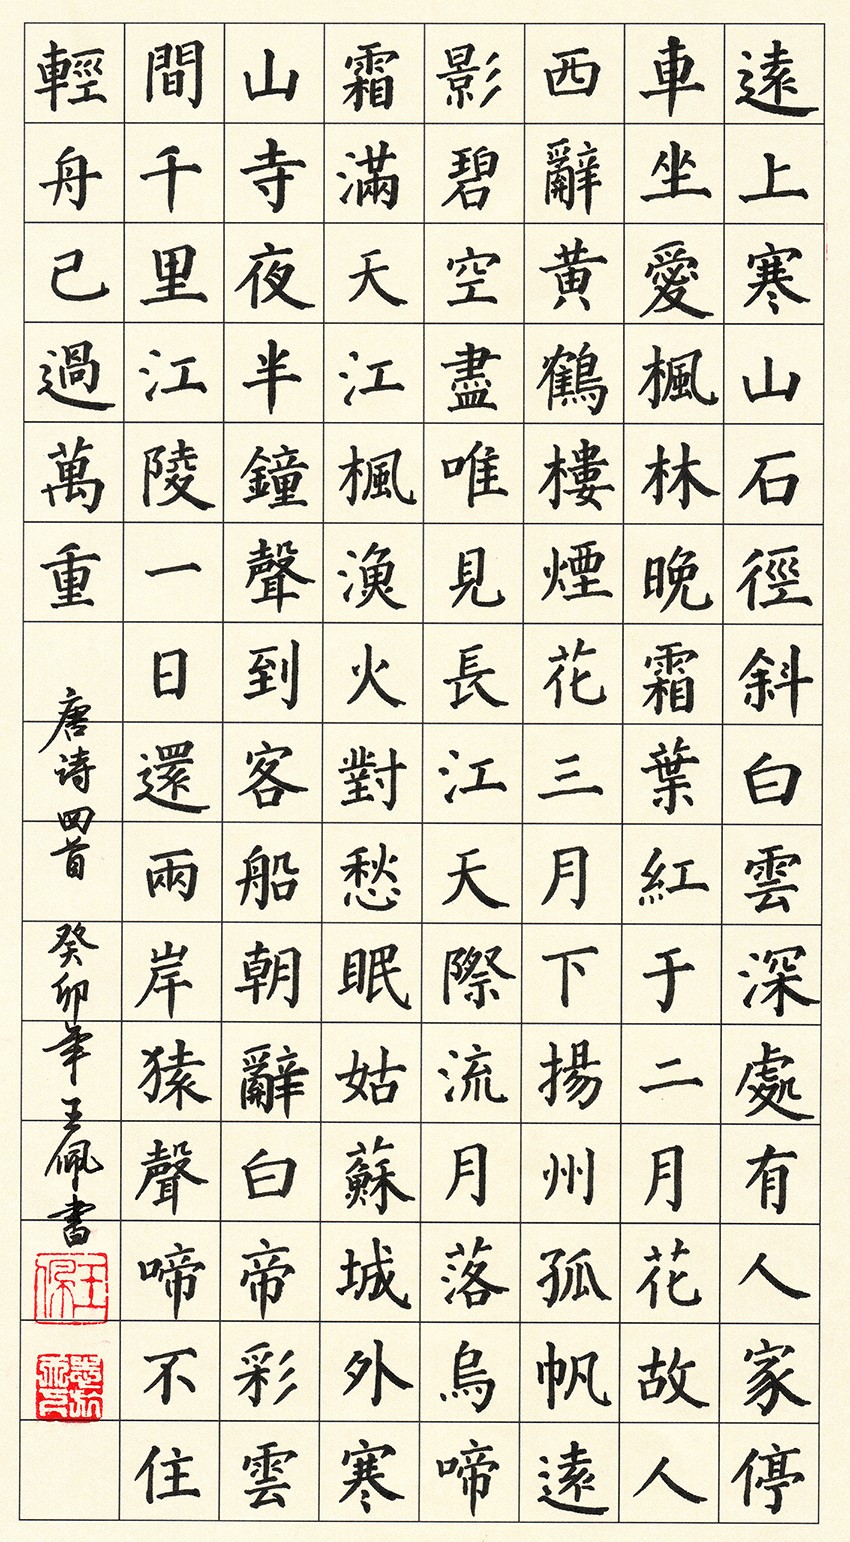 遠上寒山石徑斜白雲深處有人家停
車坐愛楓林晚霜葉紅于二月花故人
西辭黃鶴樓煙花三月下揚州孤帆遠
影碧空盡唯見長江天際流月落烏啼
霜滿天江楓漁火對愁眠姑蘇城外寒
山寺夜半鐘聲到客船朝辭白帝彩雲
間千里江陵一日還兩岸猿聲啼不住
輕舟已過萬重
唐诗四首 癸卯年王佩書
王佩